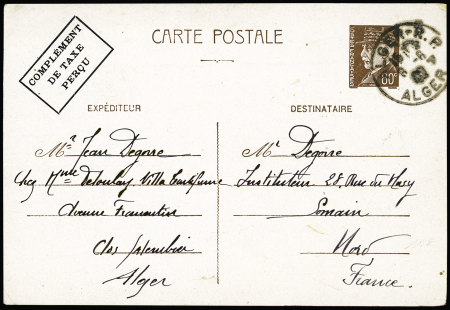 COMPLÉMENT
DE TAXE
PERÇU
CARTE POSTALE
80c
ALGER-R.P.
ALGER
EXPÉDITEUR
Mr Jean Degorre
Chez Mme Villa
Avenue Fromentin
Clos Salembier
Alger
DESTINATAIRE
Mr Degorre
Instituteur 28, Rue du
Somain
Nord
France